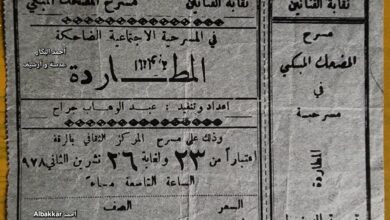 نقابة الفنانين
مسرح المضحك المبكي
في المسرحية الاجتماعية الضاحكة
المطاردة
اعداد وتنفيذ : عبد الوهاب جراح
وذلك على مسرح المركز الثقافي بالرقة
اعتباراً من ٢٣ ولغاية ٢٦ تشرين الثاني ٩٧٨
الساعة التاسعة مساءً
السعر
الصف
نقابة الفنانين
مسرح
المضحك المبكي
في
مسرحية
المطاردة
أحمد البكار
عدسة وأرشيف
Albakkar
أحمد البكار